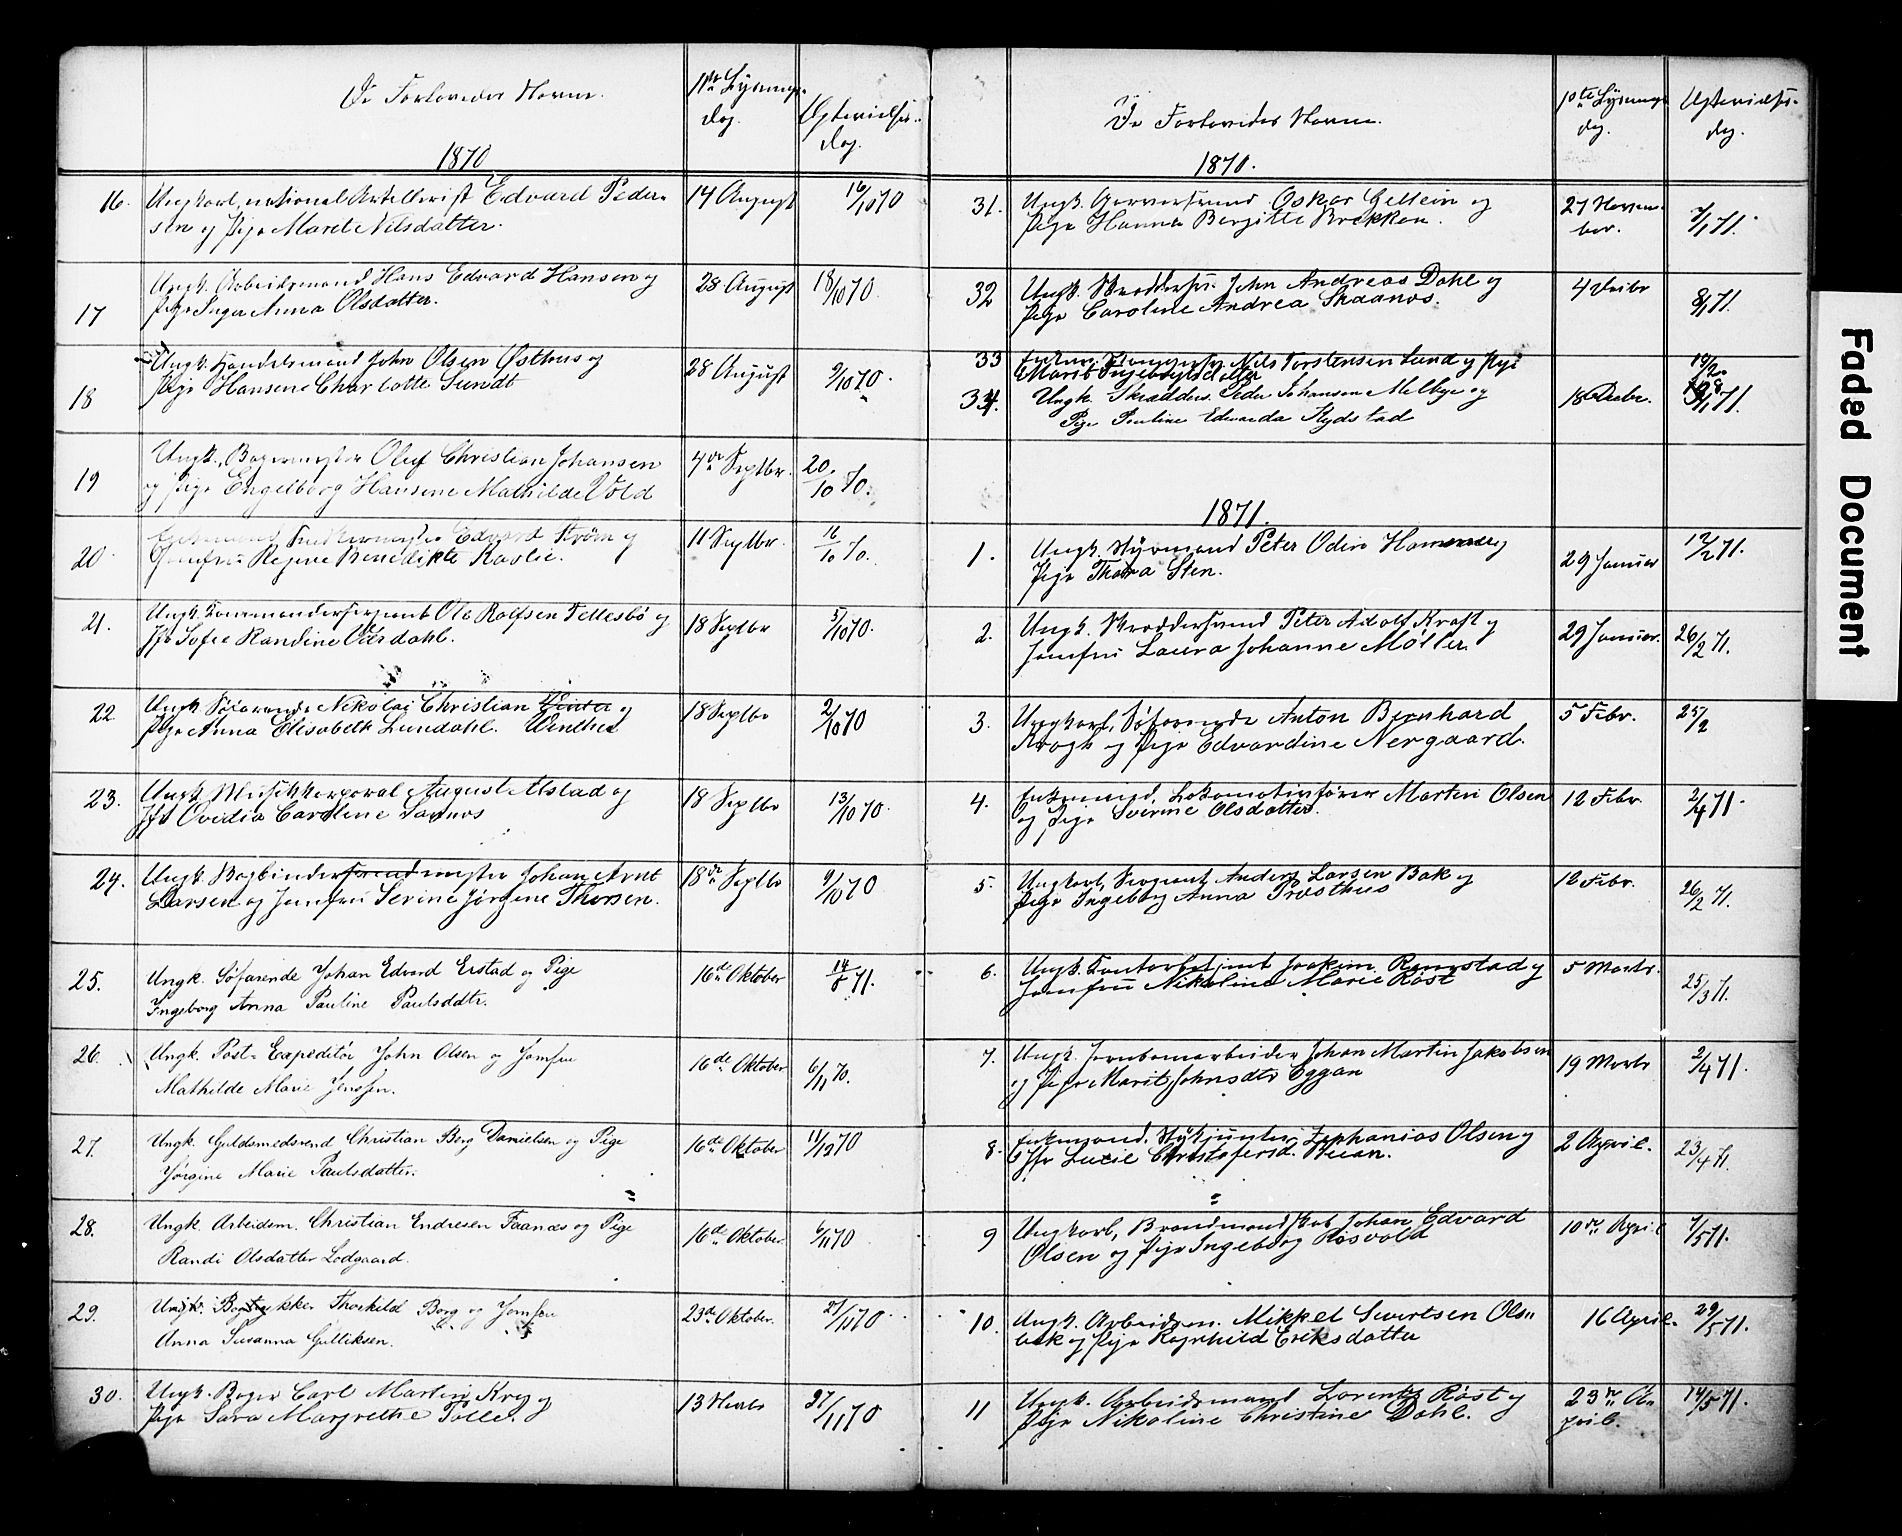 De Forlovedes Navne.
1ste Lysnings-
dag.
Vielses-
dag.
1870
16. Ungkarl, national Artillerist Edvard Peder-
sen og Pige Marit Nilsdatter.
14 August
16/10 70
17 Ungk. Arbeidsmand Hans Edvard Hansen og
Pige Inger Anna Olsdatter.
28 August
18/10 70.
18 Ungk. Handelsmand John Olsen Østhus og
Pige Hansene Charlotte Sundt
28 August
9/10 70.
19 Ungk. Bagermester Oluf Christian Johansen
og Pige Engelborg Hansine Mathilde Vold
4de Septbr.
20/10 70.
20. Enkemand, Snedkermester Edvard Strøm og
Jomfru Regine Benedikte Ravlie.
11 Septbr.
16/10 70.
21. Ungk. Kommandersergeant Ole Rolfsen Tellesbø og
Jfr Sofie Randine Værdahl.
18 Septbr
5/10 70.
22 Ungk. Søfarende Nikolai Christian Vinter og
Pige Anna Elisabeth Lundahl. Winther
18 Septbr
2/10 70
23. Ungk. Musikkorporal August Alstad og
Jfr Ovidia Caroline Saxnes
18 Septbr
13/10 70.
24. Ungk. Bogbindersvend mester Johan Arnt
Larsen og Jomfru Serine Jørgine Thorsen.
18de Septbr
9/10 70
25. Ungk. Søfarende Johan Edvard Erstad og Pige
Ingeborg Anna Pauline Paulsdatr.
16de Oktober
14/8 71.
26. Ungk. Post-Expeditør John Olsen og Jomfru
Mathilde Marie Jenssen.
16de Oktober
6/11 70.
27. Ungk. Guldsmedsvend Christian Berg Danielsen og Pige
Jørgine Marie Paulsdatter.
16de Oktober
11/12 70
28. Ungk. Arbeidsm. Christian Endresen Faanæs og Pige
Randi Olsdatter Lodgaard.
16de Oktober
6/11 70
29. Ungk. Bogtrykker Thorkild Borg og Jomfru
Anna Susanna Gulliksen.
23de Oktober.
27/11 70.
30. Ungk. Bager Carl Martin Krog og
Pige Sara Margrethe Tolle.
13 Novbr
27/11 70
De Forlovedes Navne.
1ste Lysnings
dag.
Vielses-
dag.
1870.
31. Ungk. Garversvend Oskar Gellein og
Pige Hanna Bergitte Brekken.
27 Novem-
ber.
7/1 71.
32 Ungk. Skreddersv. John Andreas Dahl og
Pige Caroline Andrea Skaanes.
4 Decbr
8/1 71.
33 Enkem. Nils Torstensen Lund og Pige
Marit Ingebrigtsdatter
19/2
34. Ungk. Skrædders. Peder Johansen Melbye og
Pige Pauline Edvarda Rydstad
18 Decbr.
1 71.
1871.
1. Ungk. Styrmand Peter Odin Hammer og
Pige Thora Sten.
29 Januar
12/2 71.
2. Ungk. Skreddersvend Peter Adolf Kraft og
Jomfru Laura Johanne Møller.
29 Januar.
26/2 71.
3. Ungkarl, Søfarende Anton Bernhard
Krogh og Pige Edvardine Nergaard.
5 Febr.
25/2
4. Enkemand, Lokomotivfører Martin Olsen
og Pige Sverine Olsdatter.
12 Febr
2/4 71.
5. Ungkarl, Sergeant Anders Larsen Bak og
Pige Ingeborg Anna Prosthus
12 Febr.
26/2 71.
6. Ungk. Kontorbetjent Joakim Remstad og
Jomfru Nikoline Marie Røst
5 Marts.
25/3 71.
7. Ungk. Jernbanearbeider Johan Martin Jakobsen
og Pige Marit Johnsdtr Eggan
19 Marts
2/4 71.
8. Enkemand, Zephanias Olsen og
Jfr Lucie Christofersd. Veian.
2 April.
23/4 71.
9 Ungkarl, Brandmandskab Johan Edvard
Olsen og Pige Ingeborg Rosvold
10de April
7/5 71.
10. Ungk. Arbeidsm. Mikkel Sivertsen Ols-
bak og Pige Ragnhild Eriksdatter
16 April.
29/5 71.
11 Ungk. Arbeidsmand Lorents Røst og
Pige Nikoline Christine Dahl.
23de A-
pril.
14/5 71.
Faded Document